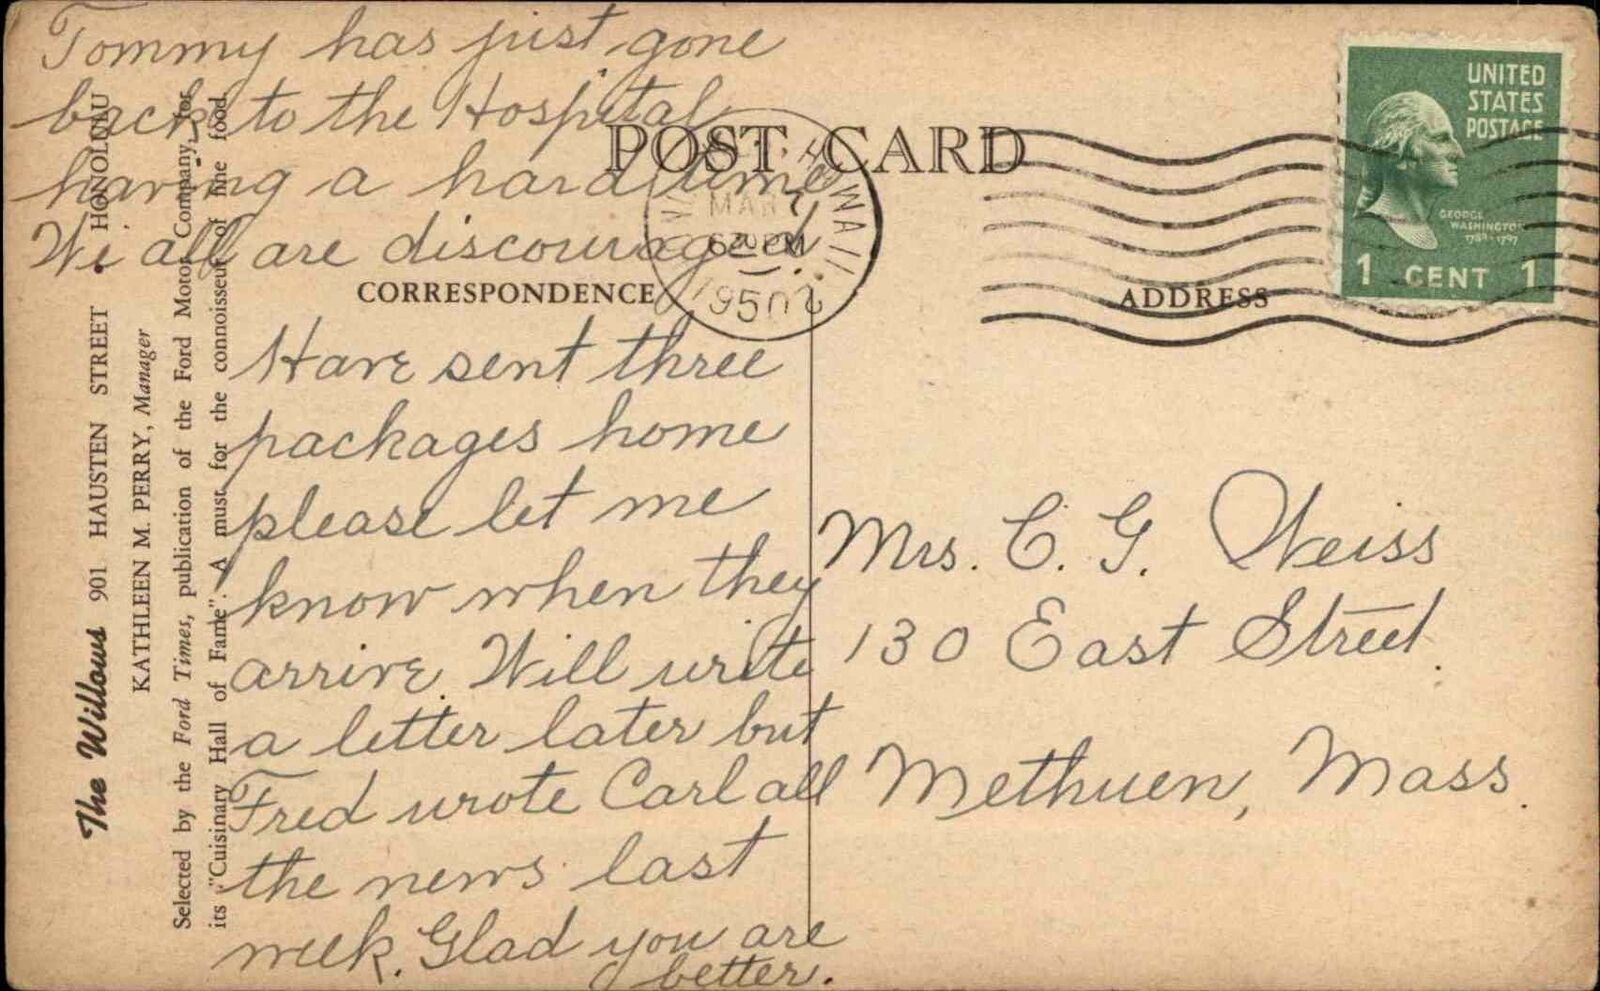 Tommy has just gone
back to the Hospital
having a hard time
We all are discouraged
POST CARD
CORRESPONDENCE
Have sent three
packages home
please let me
know when they
arrive. Will write
a letter later but
Fred wrote Carl all
the news last
week. Glad you are
better.
The Willows 901 HAUSTEN STREET • HONOLULU
KATHLEEN M. PERRY, Manager
Selected by the Ford Times, publication of the Ford Motor Company, for
its "Cuisinary Hall of Fame". A must for the connoisseur of fine food.
HAWAII
MAR 7
PM
1950
UNITED
STATES
POSTAGE
GEORGE
WASHINGTON
1789-1797
1 CENT 1
ADDRESS
Mrs. C. G. Weiss
130 East Street.
Methuen, Mass.